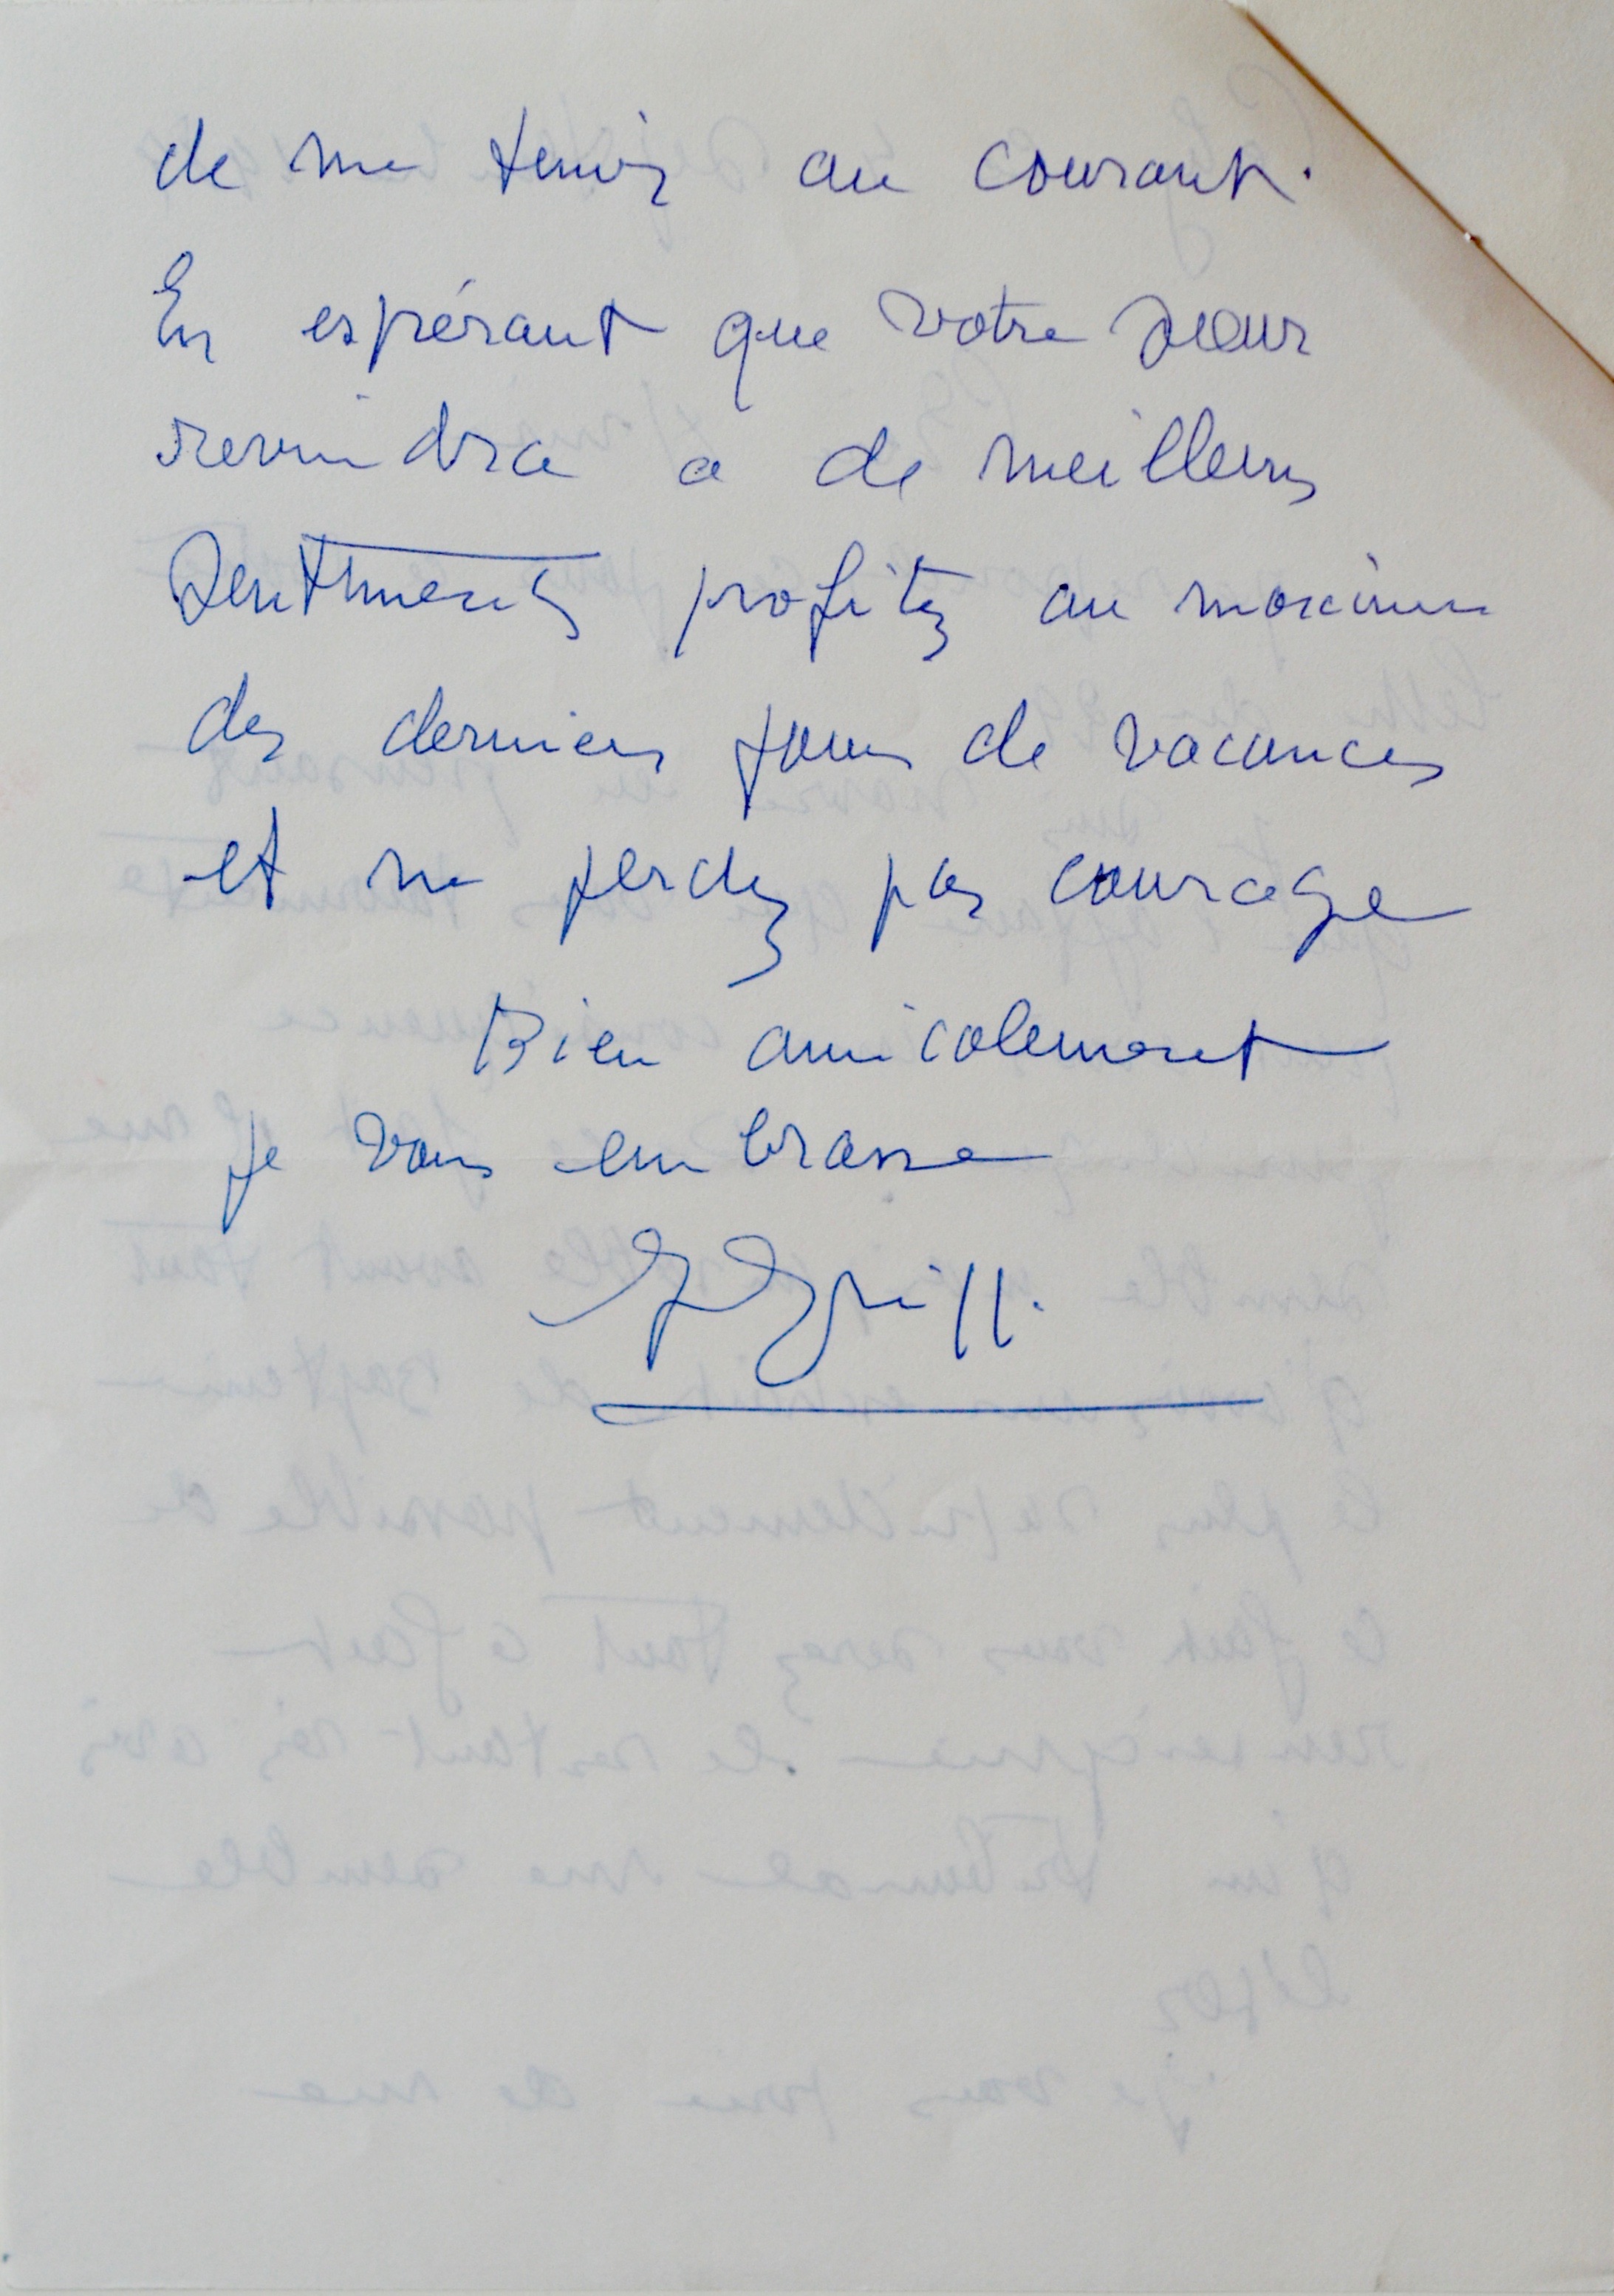 de me tenir au courant.
En espérant que votre soeur
reviendra a de meilleurs
sentiments profitez au maximum
des derniers jours de vacances
et ne perdez pas courage
Bien amicalement
je vous embrasse